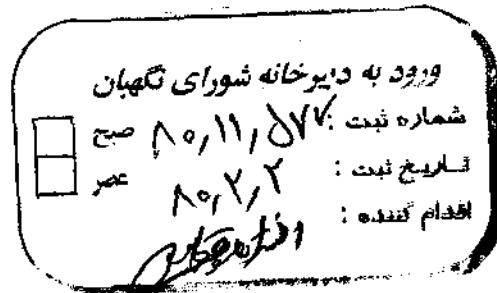 ورود به دبیرخانه شورای نگهبان
شماره ثبت : ۸۰,۱۱,۵۷۷ صبح
تاریخ ثبت : ۸۰,۲,۲ عصر
اقدام کننده :